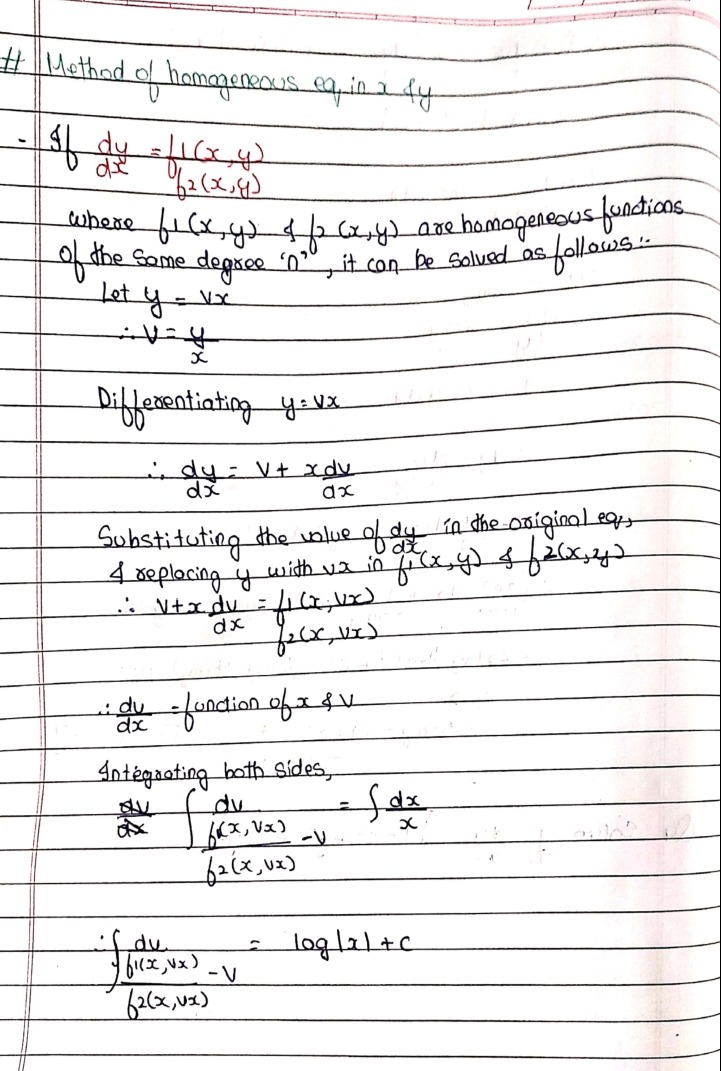 # Method of homogeneous eq. in x & y
- If dy/dx = f1(x,y)/f2(x,y)
where f1(x,y) & f2(x,y) are homogeneous functions
of the same degree 'n', it can be solved as follows:-
Let y = vx
∴ v = y/x
Differentiating y = vx
∴ dy/dx = v + x dv/dx
Substituting the value of dy/dx in the original eq,
& replacing y with vx in f1(x,y) & f2(x,y)
∴ v + x dv/dx = f1(x,vx)/f2(x,vx)
∴ dv/dx = function of x & v
Integrating both sides,
dv/dx ∫ dv/(f1(x,vx)/f2(x,vx) - v) = ∫ dx/x
∴ ∫ dv/(f1(x,vx)/f2(x,vx) - v) = log|x| + c